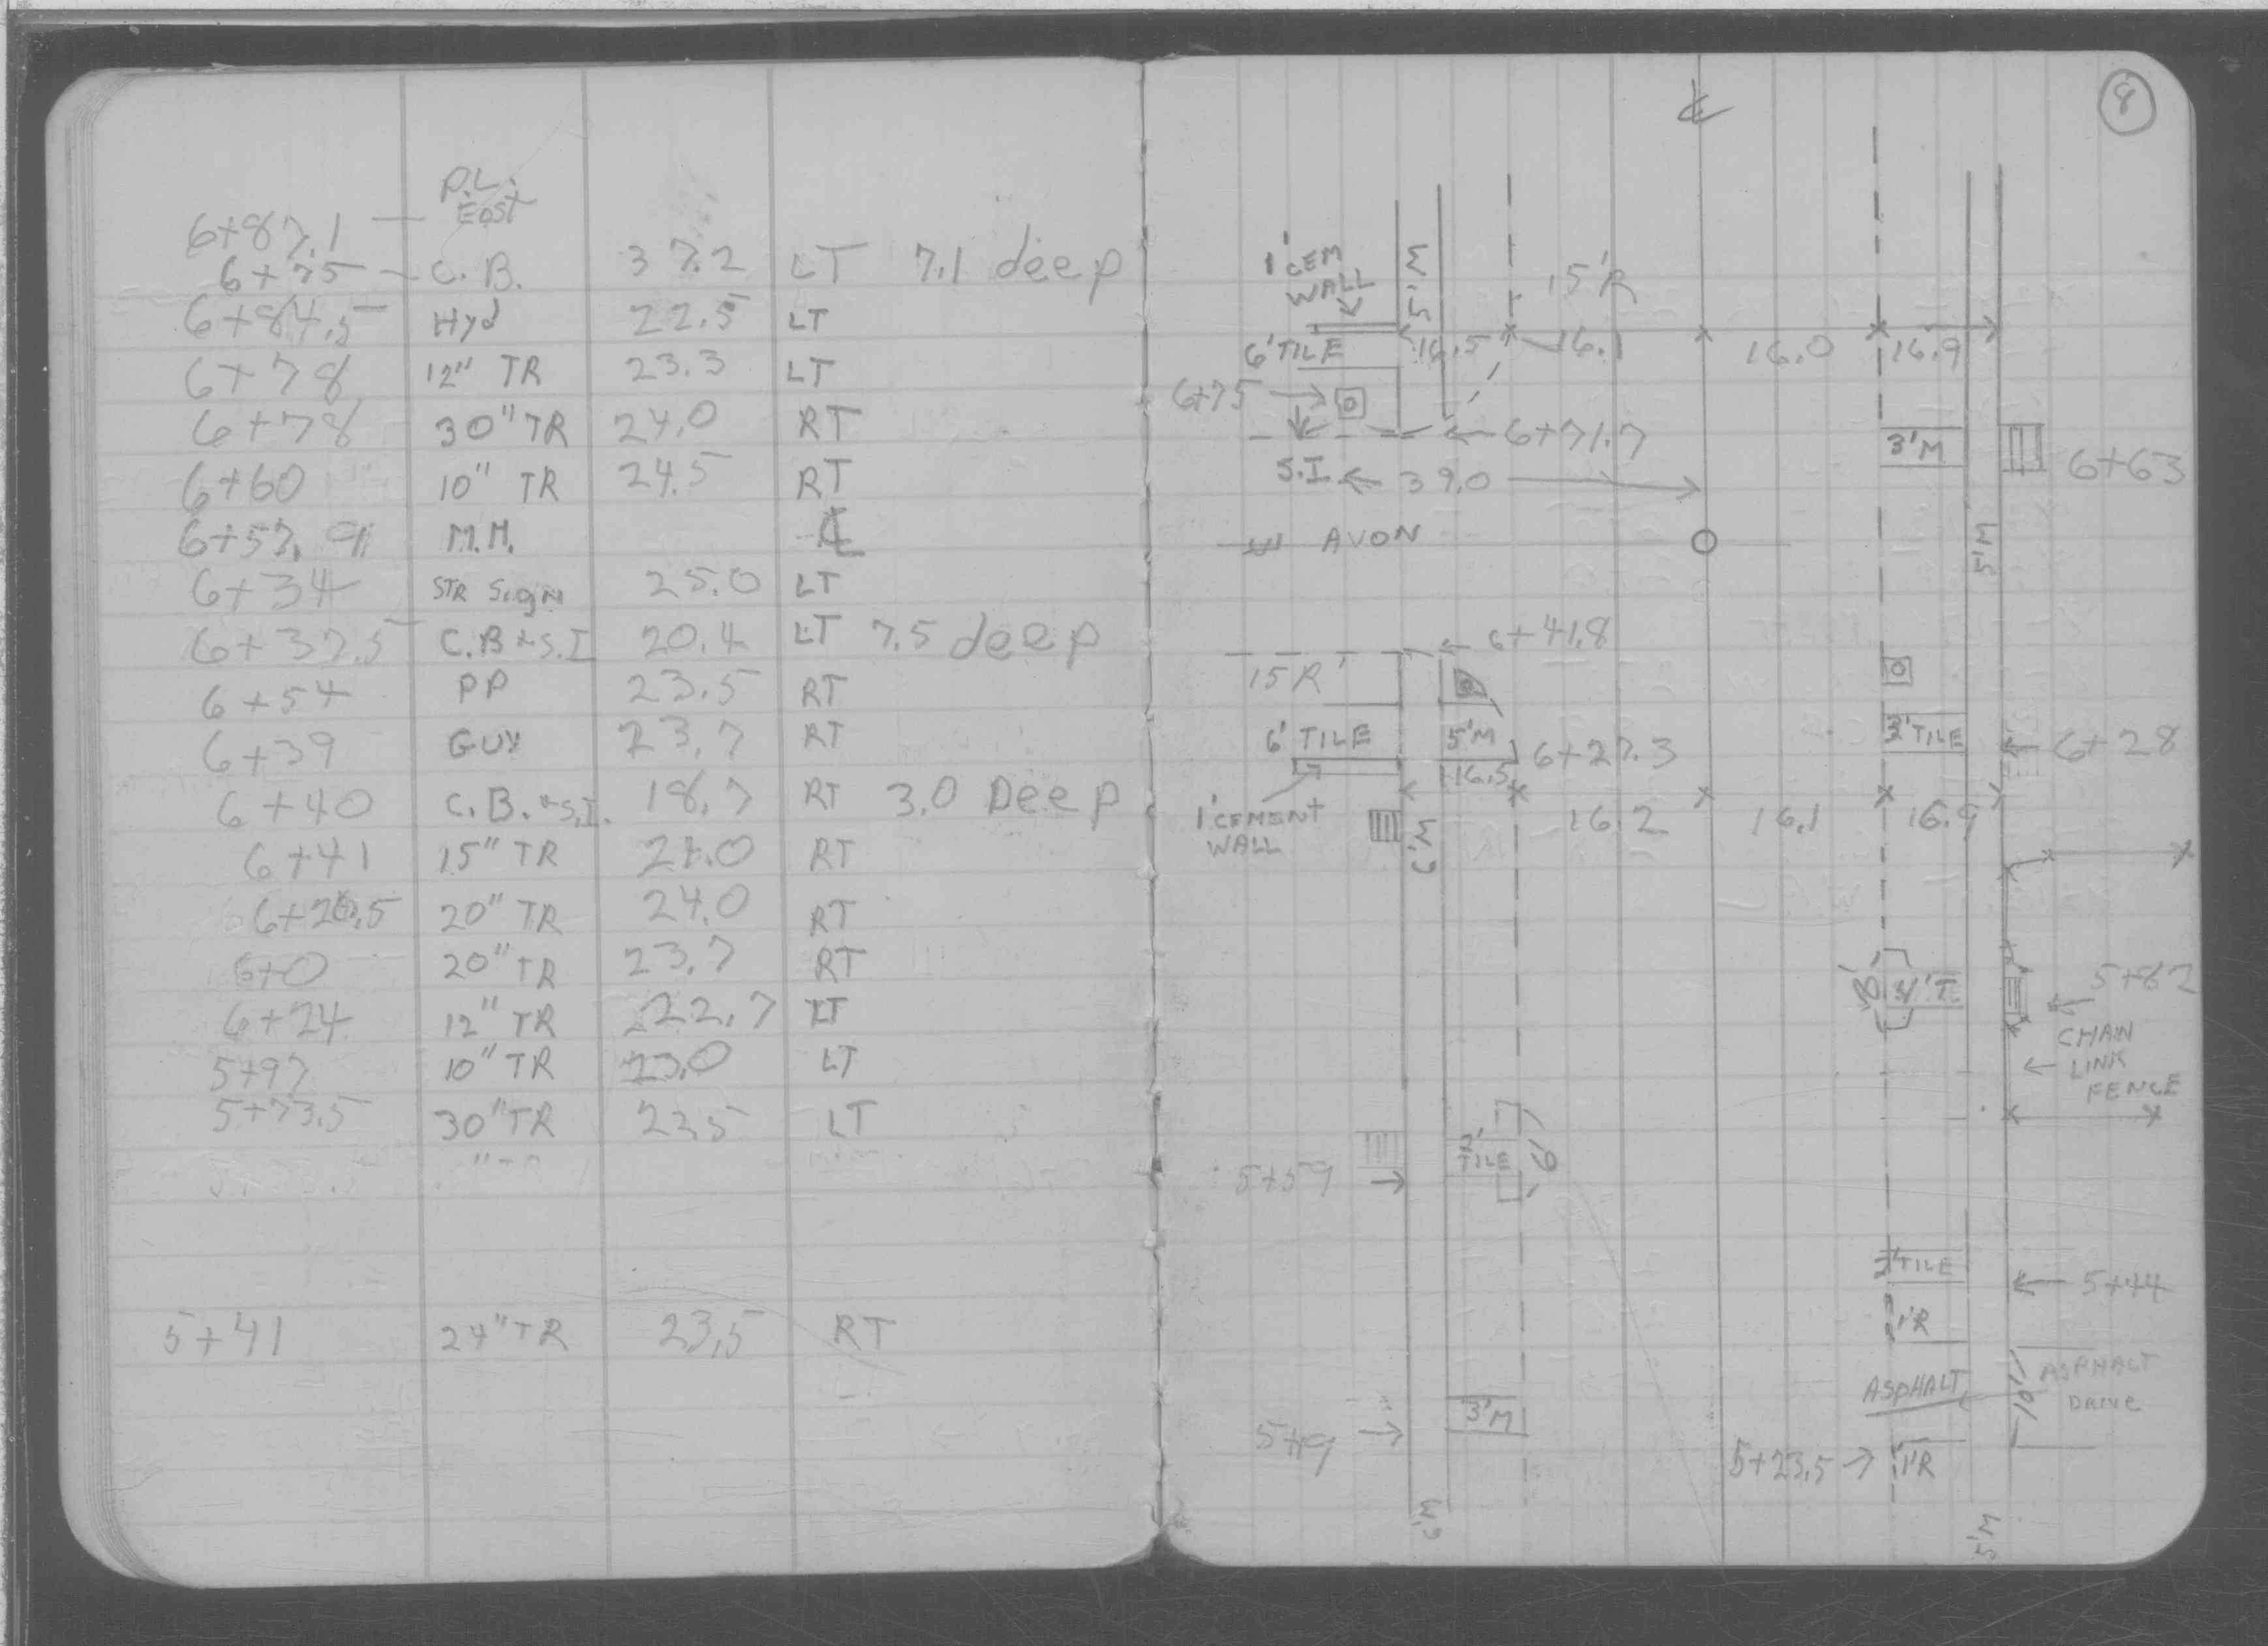 8
P.L. East
6+87.1
6+75 - C.B. 37.2 LT 7.1 deep
6+84.5 Hyd 22.5 LT
6+78 12" TR 23.3 LT
6+78 30" TR 24.0 RT
6+60 10" TR 24.5 RT
6+57.91 M.H. ℄
6+34 STR Sign 25.0 LT
6+37.5 C.B + S.I 20.4 LT 7.5 deep
6+54 PP 23.5 RT
6+39 GUY 23.7 RT
6+40 C.B. + S.I. 18.7 RT 3.0 Deep
6+41 15" TR RT
20" TR 24.0 RT
6+0 20" TR 23.7 RT
6+24 12" TR 22.7 LT
5+97 10" TR 23.0 LT
5+73.5 30" TR 23.5 LT
5+41 24" TR 23.5 RT
℄
1' CEM
WALL
5'M
15'R
6' TILE
16.5
16.1
16.0
16.9
6+75
6+71.7
3'M
6+63
S.I.
39.0
AVON
5'M
6+41.8
15R'
6' TILE
5'M
6+27.3
TILE
6+28
16.5
1' CEMENT
WALL
6'M
16.2
16.1
16.9
8'
5+82
CHAIN
LINK
FENCE
2'
TILE
6'
5+59
2' TILE
5+44
1'R
ASPHALT
10'
ASPHALT
DRIVE
3'M
5+23.5
1'R
6'M
5'M